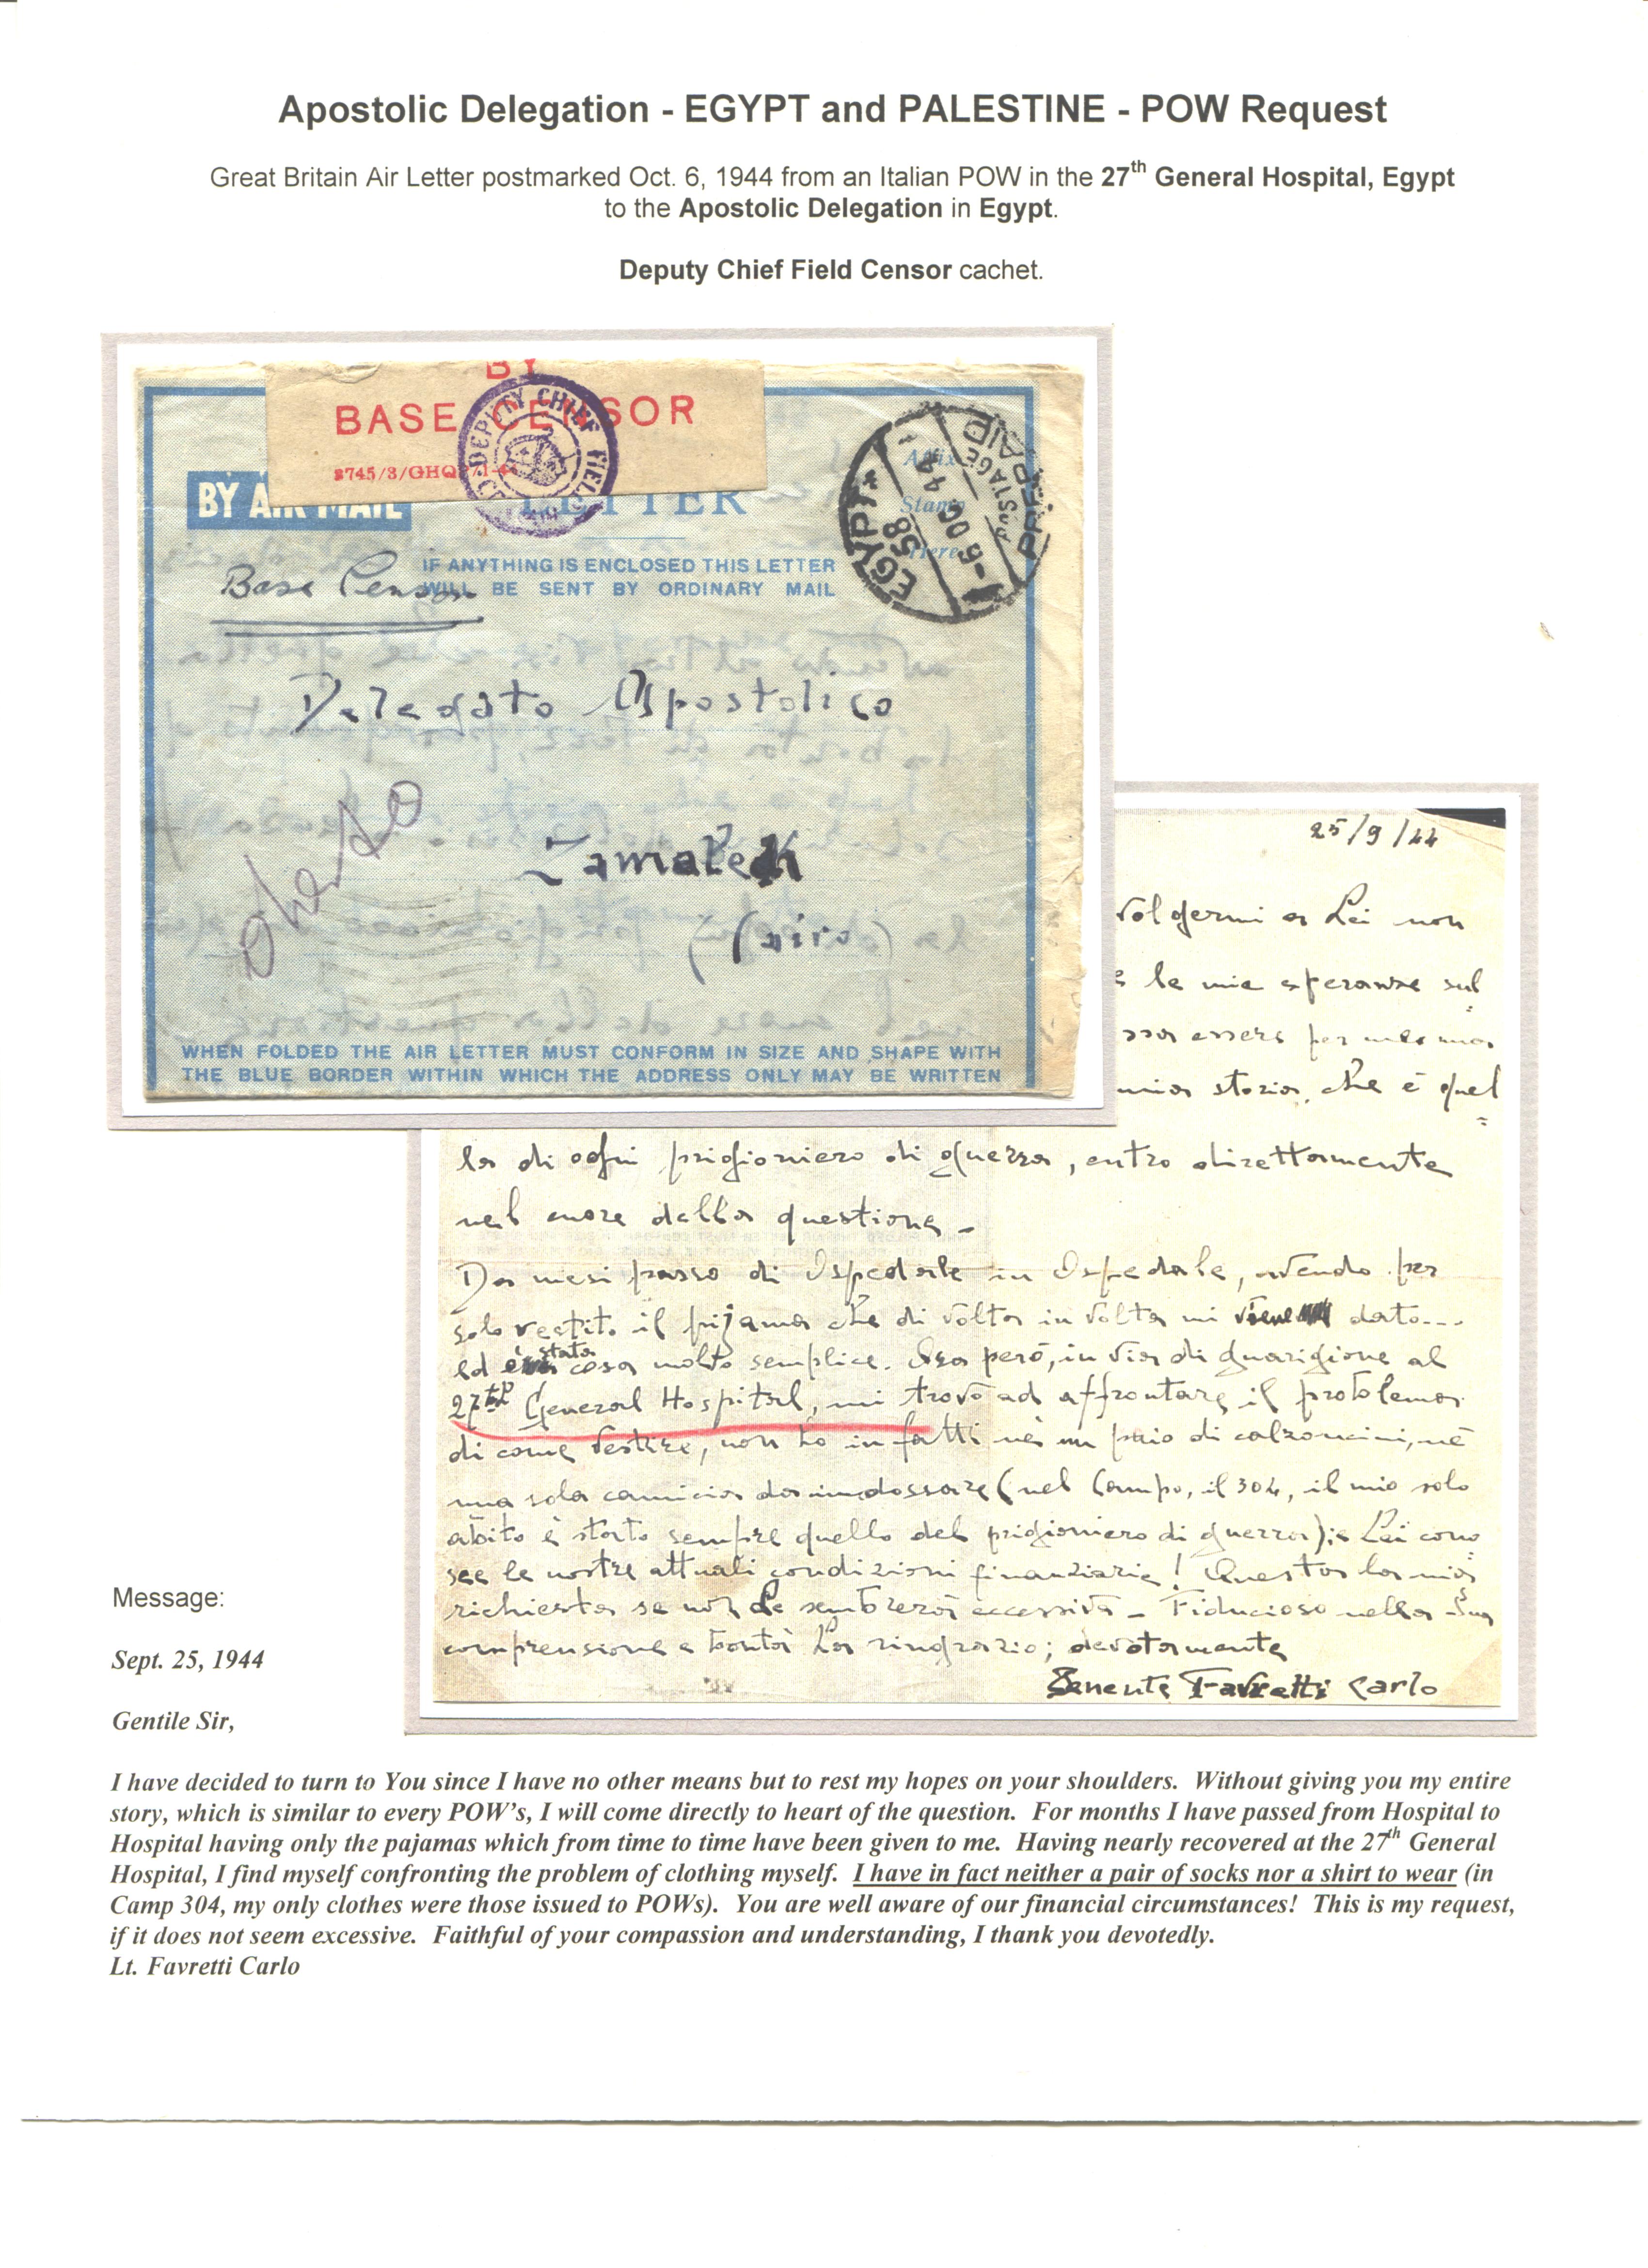 Apostolic Delegation - EGYPT and PALESTINE - POW Request
Great Britain Air Letter postmarked Oct. 6, 1944 from an Italian POW in the 27th General Hospital, Egypt
to the Apostolic Delegation in Egypt.
Deputy Chief Field Censor cachet.
BY
BASE CENSOR
DEPUTY CHIEF FIELD
BY AIR MAIL
LETTER
Affix
Stamp
Here
EGYPT
58
OC 44
POSTAGE
PREPAID
IF ANYTHING IS ENCLOSED THIS LETTER
WILL BE SENT BY ORDINARY MAIL
Base Censor
Delegato Apostolico
Zamalek
(Cairo)
WHEN FOLDED THE AIR LETTER MUST CONFORM IN SIZE AND SHAPE WITH
THE BLUE BORDER WITHIN WHICH THE ADDRESS ONLY MAY BE WRITTEN
25/9/44
volgermi a Lei non
le mie speranze sul
essere per
mia storia, che è quel
la di ogni prigioniero di guerra, entro direttamente
nel cuore della questione -
Da mesi passo di Ospedale in Ospedale, avendo per
solo vestito il pijama che di volta in volta mi viene dato...
ed è stata cosa molto semplice. Ora però, in via di guarigione al
27th General Hospital, mi trovo ad affrontare il problema
di come vestire, non ho infatti nè un paio di calzoncini, nè
una sola camicia da indossare (nel Campo, il 304, il mio solo
abito è stato sempre quello del prigioniero di guerra); Lei cono
sce le nostre attuali condizioni finanziarie! Questa la mia
richiesta se non Le sembrerà eccessiva - Fiducioso nella Sua
comprensione e bontà La ringrazio; devotamente
Tenente Favretti Carlo
Message:
Sept. 25, 1944
Gentile Sir,
I have decided to turn to You since I have no other means but to rest my hopes on your shoulders. Without giving you my entire
story, which is similar to every POW's, I will come directly to heart of the question. For months I have passed from Hospital to
Hospital having only the pajamas which from time to time have been given to me. Having nearly recovered at the 27th General
Hospital, I find myself confronting the problem of clothing myself. I have in fact neither a pair of socks nor a shirt to wear (in
Camp 304, my only clothes were those issued to POWs). You are well aware of our financial circumstances! This is my request,
if it does not seem excessive. Faithful of your compassion and understanding, I thank you devotedly.
Lt. Favretti Carlo